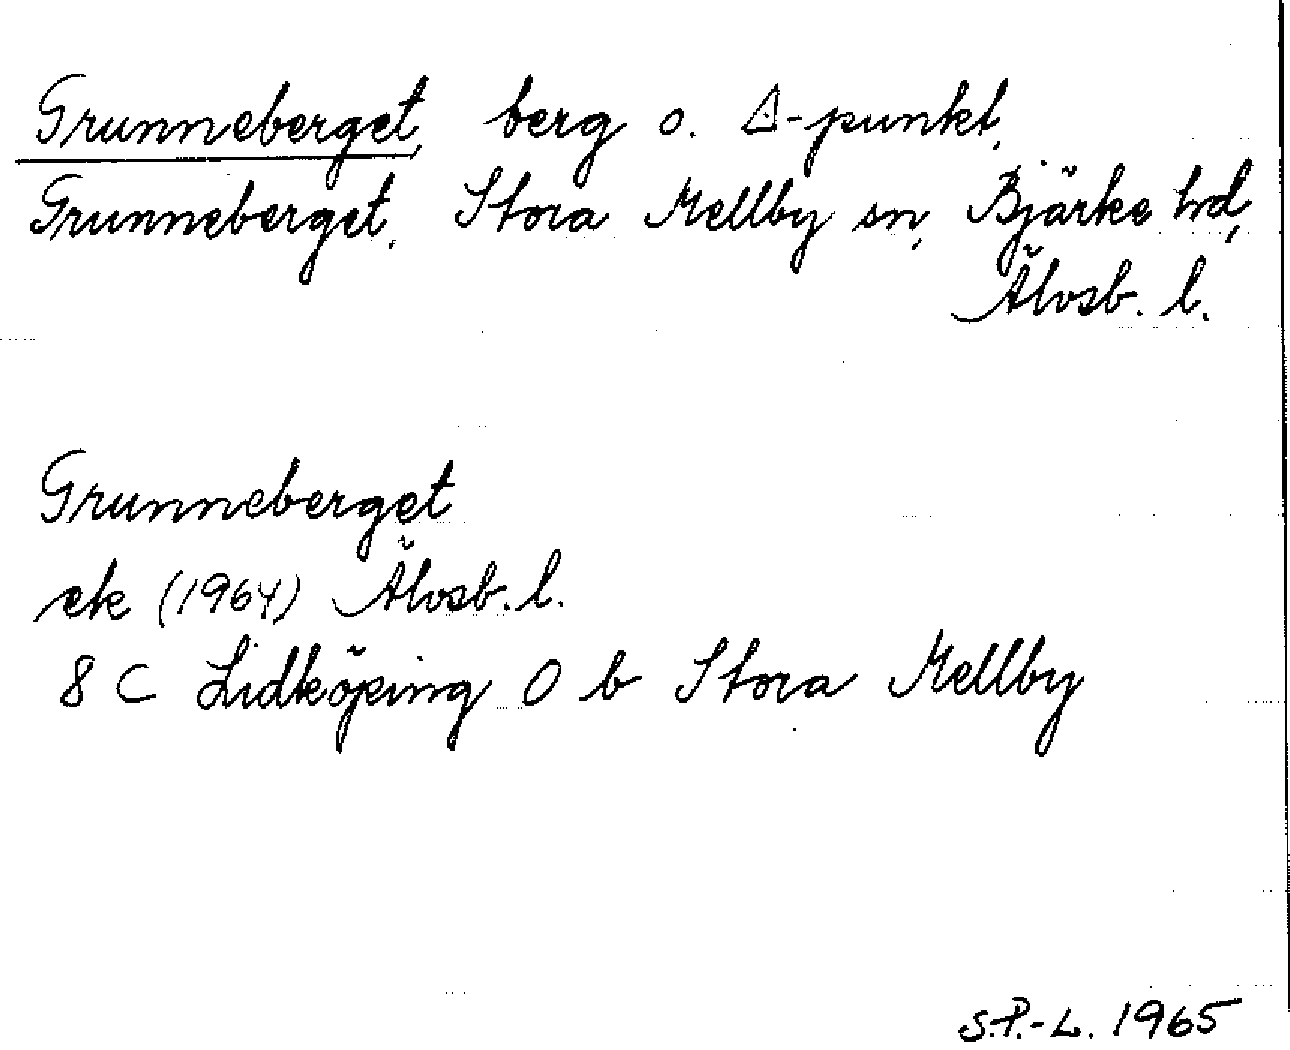 Grunneberget, berg o. △-punkt,
Grunneberget, Stora Mellby sn, Bjärke hd,
Älvsb. l.
Grunneberget
ek (1964) Älvsb. l.
8 C Lidköping 0 b Stora Mellby
S.P.-L. 1965